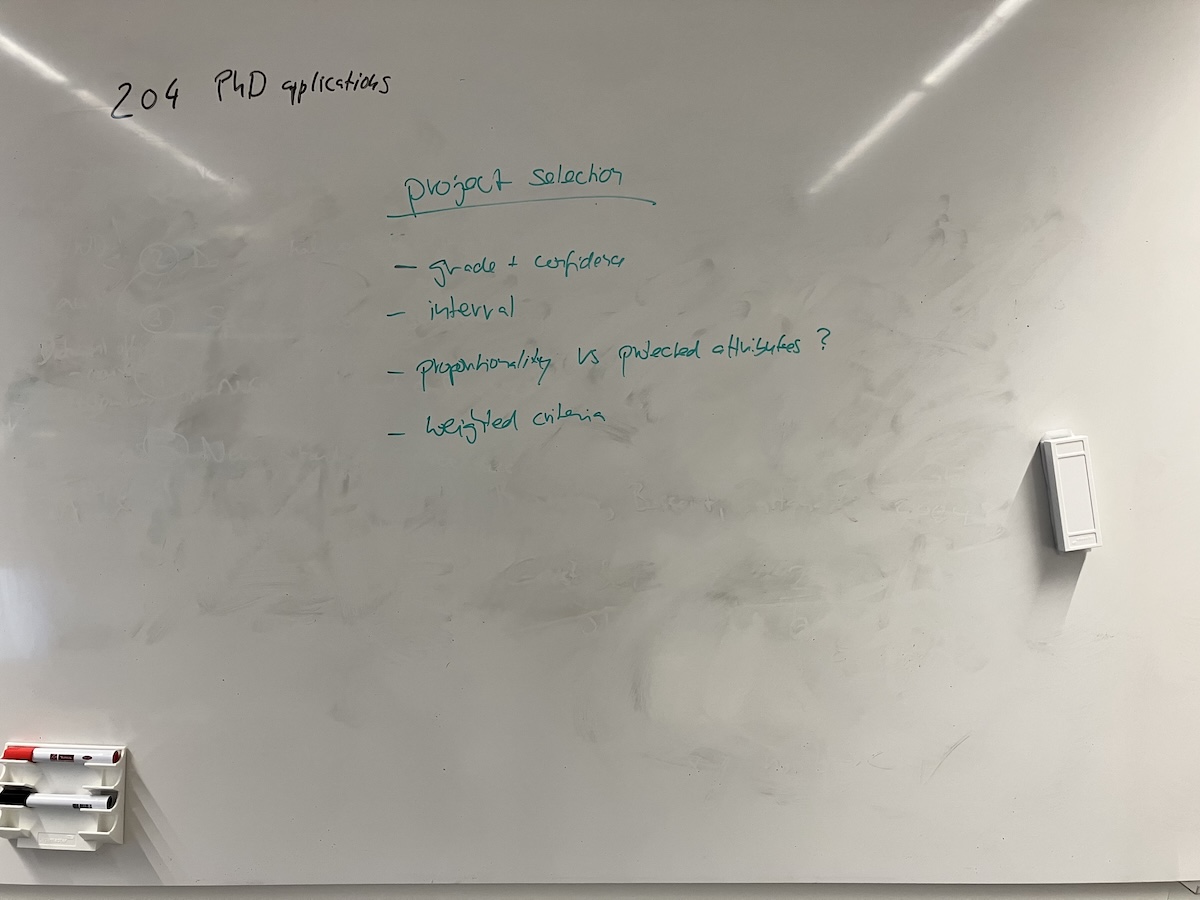 204 PhD applications
project selection
- grade + confidence
- interval
- proportionality vs protected attributes ?
- weighted criteria